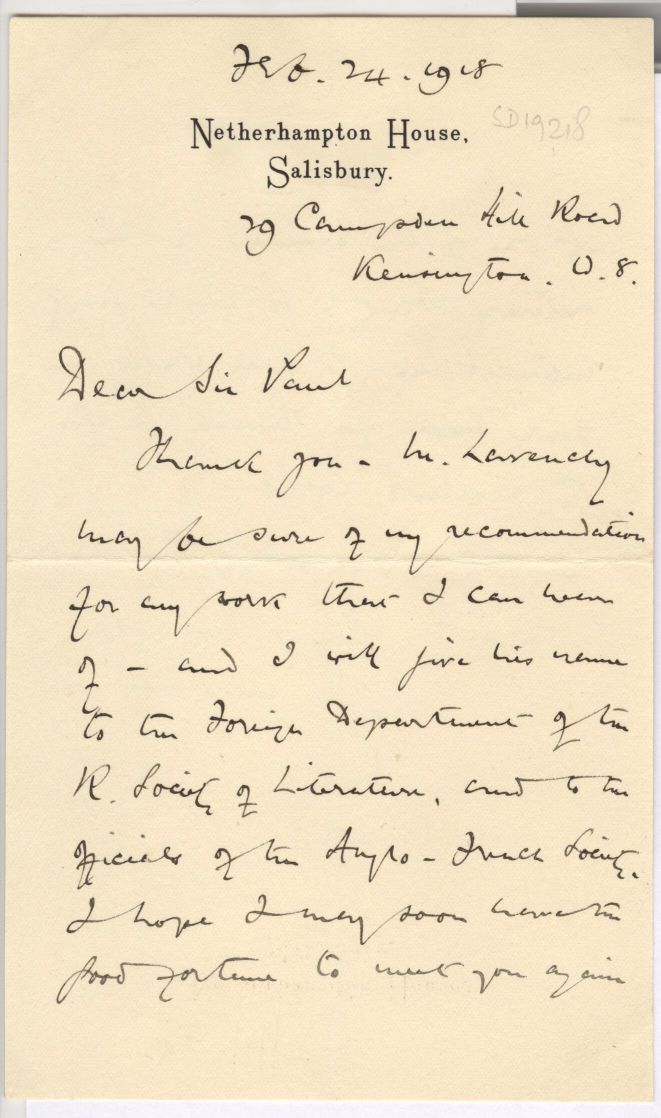 Feb. 24. 1918
SD19218
Netherhampton House,
Salisbury.
29 Campden Hill Road
Kensington. W. 8.
Dear Sir Paul
Thank you – M. Lavendy
may be sure of my recommendation
for any work that I can hear
of – and I will give his name
to the Foreign Department of the
R. Society of Literature, and to the
officials of the Anglo-French Society.
I hope I may soon have the
good fortune to meet you again